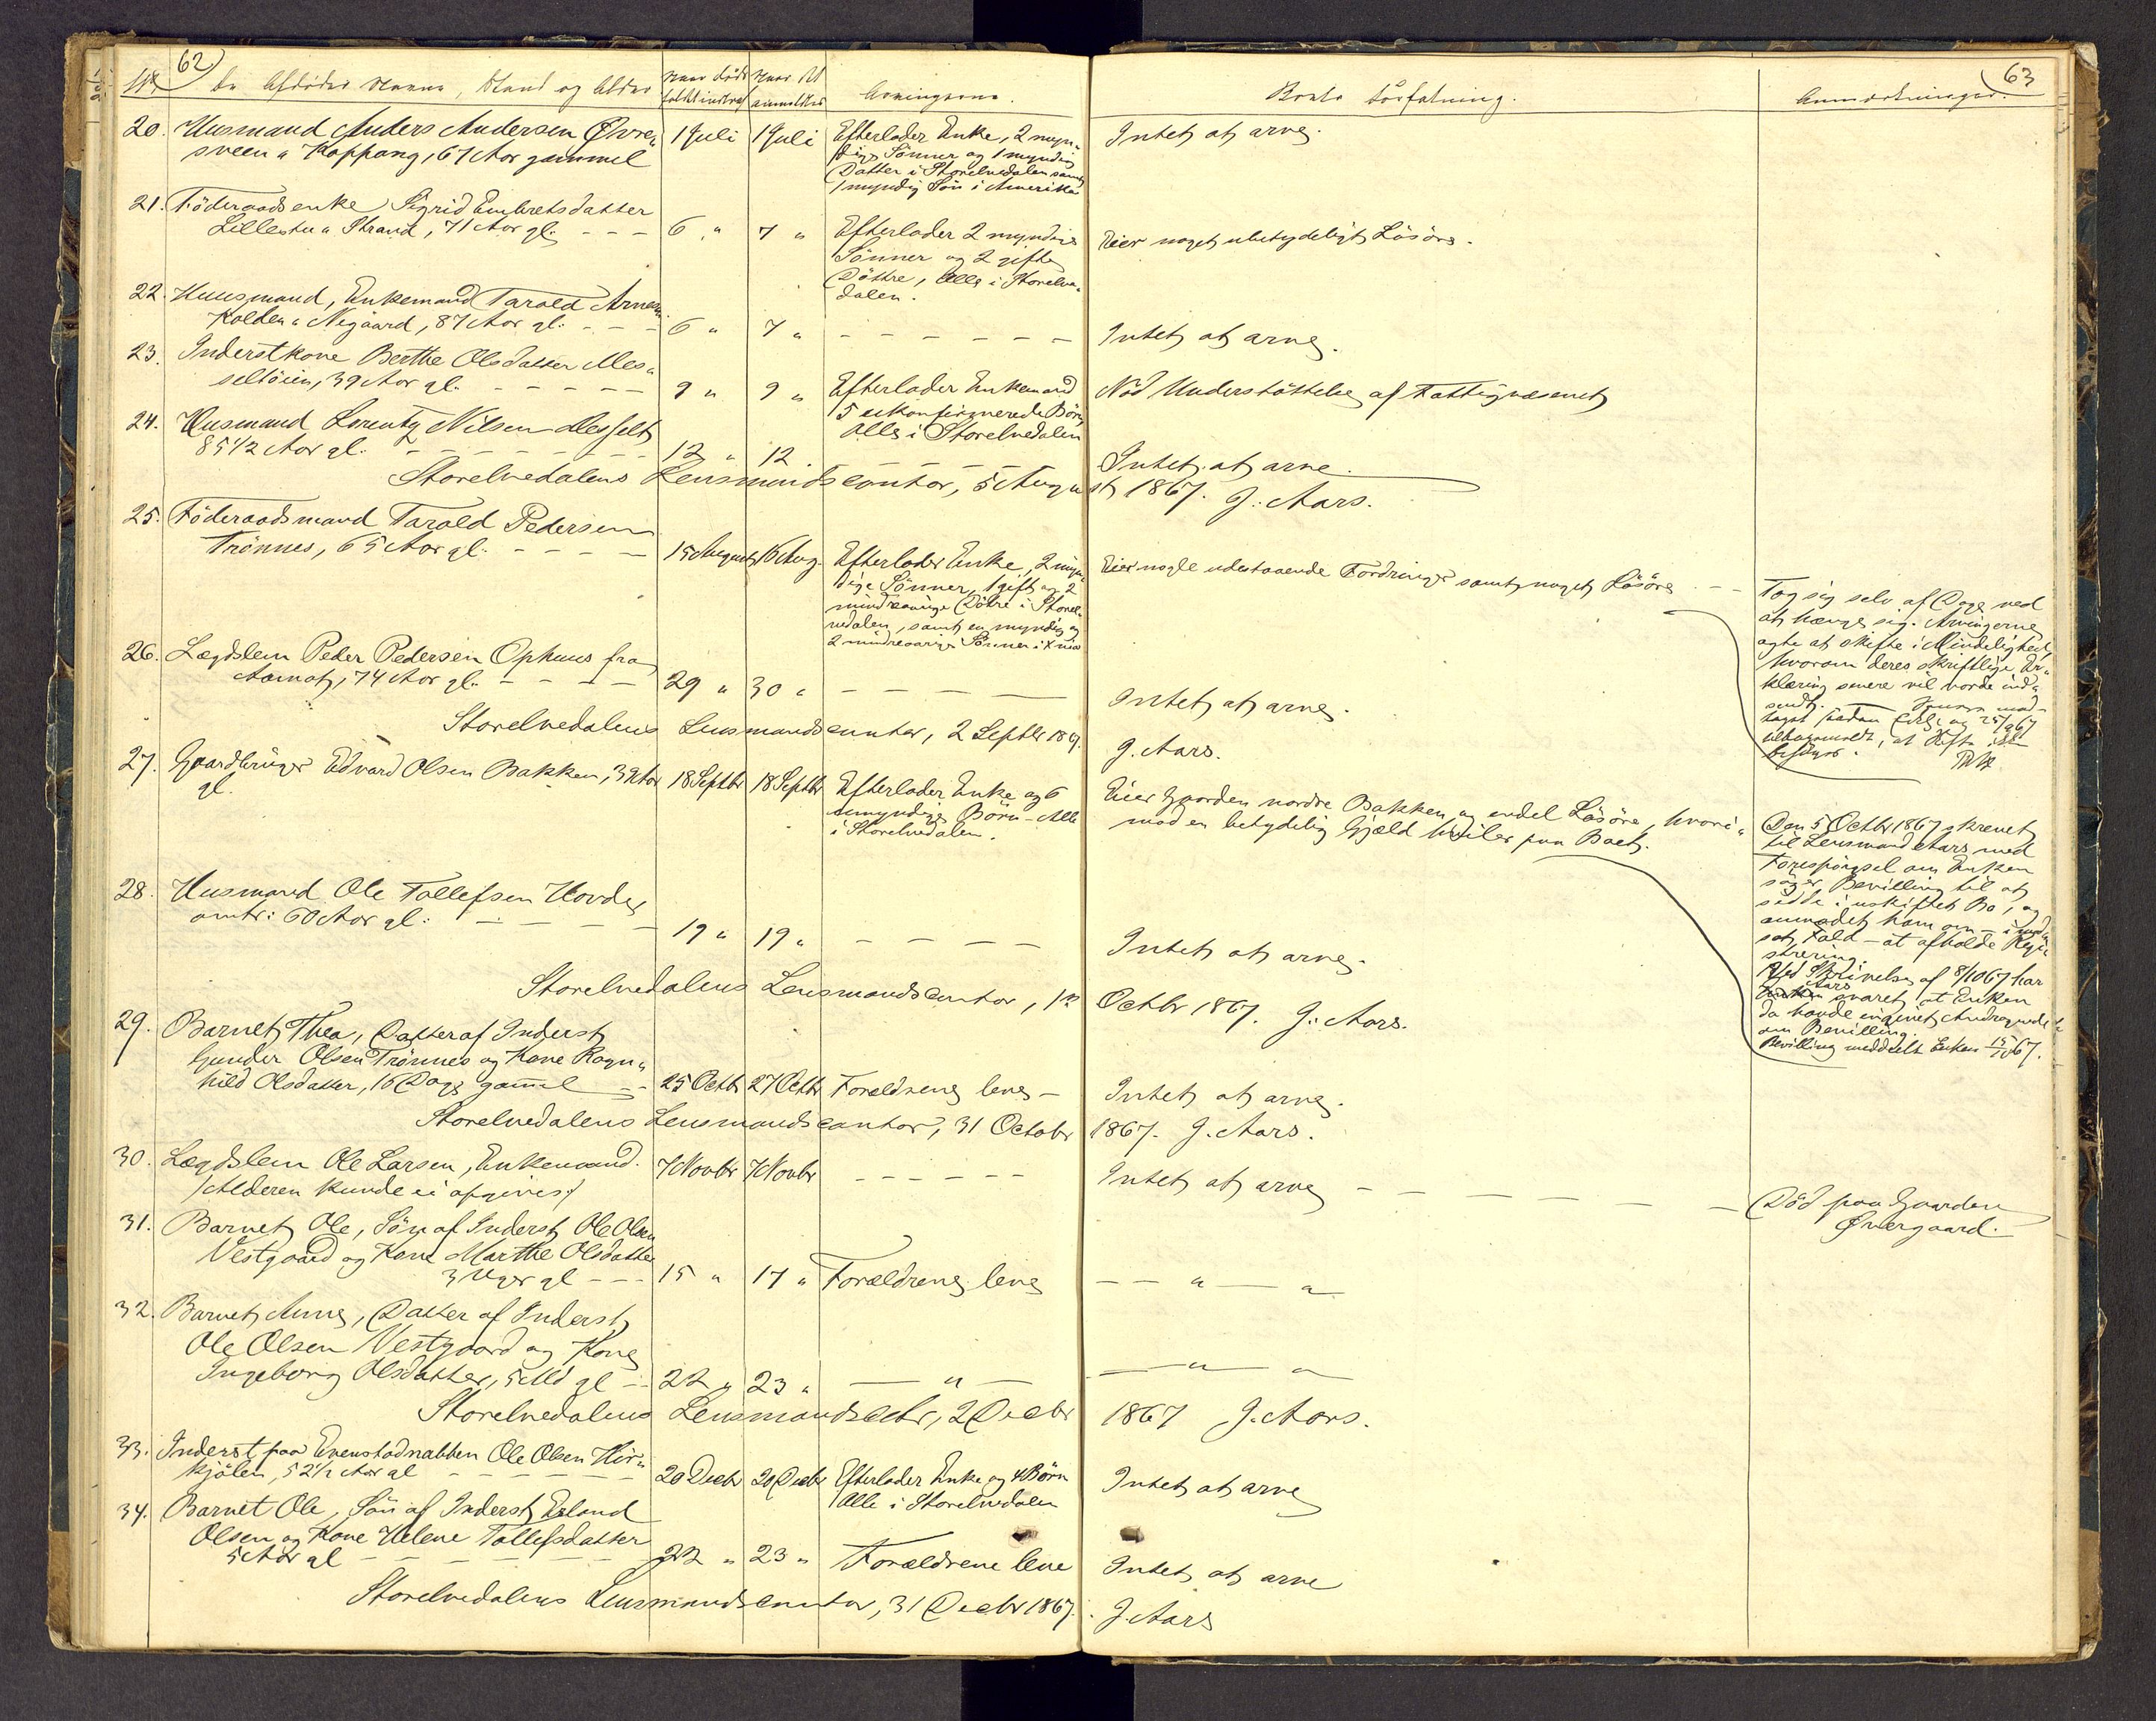 62
Nr
De Afdödes Navne, Stand og Alder
Naar dödsfaldet indtraf
Naar det anmeldtes
Arvingerne.
Boets Forfatning.
Anmærkninger.
63
20. Husmand Anders Andersen Øvre„ 1 Juli 1 Juli Efterlader Enke, 2 myn„ Intet at arve.
sveen u Koppang, 67 Aar gammel
dige Sönner og 1 myndig
Datter i Storelvedalen samt
1 myndig Sön i Amerika
21. Föderaadsenke Sigrid Embretsdatter
Lillestu u Strand, 71 Aar gl. - - - 6 „ 7 „ Efterlader 2 myndige Eier noget ubetydeligt Lösöre.
Sönner og 2 gifte
Döttre, Alle i Storelve„
dalen.
22. Huusmand, Enkemand Tarald Arnesen
Kolden u Negaard, 87 Aar gl. - - - 6 „ 7 „ - - - - - - Intet at arve.
23. Inderstkone Berthe Olsdatter Mes„
seltöien, 39 Aar gl. - - - - - 9 „ 9 „ Efterlader Enkemand Nöd Understöttelse af Fattigvæsenet
5 ukonfirmerede Börn
Alle i Storelvedalen
24. Husmand Lorentz Nilsen Messelt
85 1/2 Aar gl. - - - - - - - 12 „ 12 - - - Intet at arve.
Storelvedalens Lensmandscontor, 5 August 1867. J. Aars.
25. Föderaadsmand Tarald Pedersen
Trönnes, 65 Aar gl. - - - - 15 August 16 Aug. Efterlader Enke, 2 myn„ Eier nogle udestaaende Fordringer samt noget Lösöre - -
dige Sönner, 1 gift og 2
mindreaarige Döttre i Storel„
vedalen, samt en myndig og
2 mindreaarige Sönner i Xnia
Tog sig selv af Dage ved
at hænge sig. Arvingerne
agte at skifte i Mindelighed,
hvorom deres skriftlige Er„
klæring senere vil vorde ind„
sendt.
26. Lægdslem Peder Pedersen Ophuus fra
Aamot, 74 Aar gl. - - - - 29 „ 30 „ - - - - Intet at arve.
Storelvedalens Lensmandscontor, 2 Septbr 1867. J. Aars.
27. Gaardbruger Edvard Olsen Bakken, 39 Aar 18 Septbr 18 Septbr Efterlader Enke og 6 Eier Gaarden nordre Bakken og endel Lösöre, hvori„
gl. umyndige Börn - Alle mod en betydelig Gjæld hviler paa Boet.
i Storelvedalen.
Den 5 Octbr 1867 skrevet
til Lensmand Aars med
Forespörgsel om Enken
söger Bevilling til at
sidde i uskiftet Bo, og
anmodet ham om - i mod„
sat Fald - at afholde Regi„
strering.
Ved Skrivelse af 8/10 67 har
Aars svaret, at Enken
da havde indgivet Andragende
om Bevilling.
Bevilling meddelt Enken 15/10 67.
28. Husmand Ole Tollefsen Hovde,
omtr: 60 Aar gl: - - - - 19 „ 19 „ - - - - Intet at arve.
Storelvedalens Lensmandscontor, 1ste Octbr 1867. J. Aars.
29. Barnet Thea, Datter af Inderst
Gunder Olsen Trönnes og Kone Ragn„
hild Olsdatter, 16 Dage gammel - - 25 Octbr 27 Octbr Forældrene leve - Intet at arve.
Storelvedalens Lensmandscontor, 31 October 1867. J. Aars.
30. Lægdslem Ole Larsen, Enkemand. 7 Novbr 7 Novbr - - - - - Intet at arve - - - - - - Död paa Gaarden
/Alderen kunde ei opgives/ Øvergaard.
31. Barnet Ole, Sön af Inderst Ole Olsen
Vestgaard og Kone Marthe Olsdatter
3 Uger gl - - - 15 „ 17 „ Forældrene leve - - „ - „
32. Barnet Anne, Datter af Inderst
Ole Olsen Vestgaard og Kone
Ingeborg Olsdatter, 5 Md gl - - 22 „ 23 „ - „ - - „ - „
Storelvedalens Lensmandsctr, 2 Decbr 1867 J. Aars.
33. Inderst paa Evenstadnabben Ole Olsen Hir„
kjölen, 52 1/2 Aar gl - - - - 20 Decbr 20 Decbr Efterlader Enke og 4 Börn Intet at arve
Alle i Storelvedalen
34. Barnet Ole, Sön af Inderst Erland
Olsen og Kone Helene Tollefsdatter
5 Aar gl - - - - - - 22 „ 23 „ Forældrene leve Intet at arve
Storelvedalens Lensmandscontor, 31 Decbr 1867. J. Aars